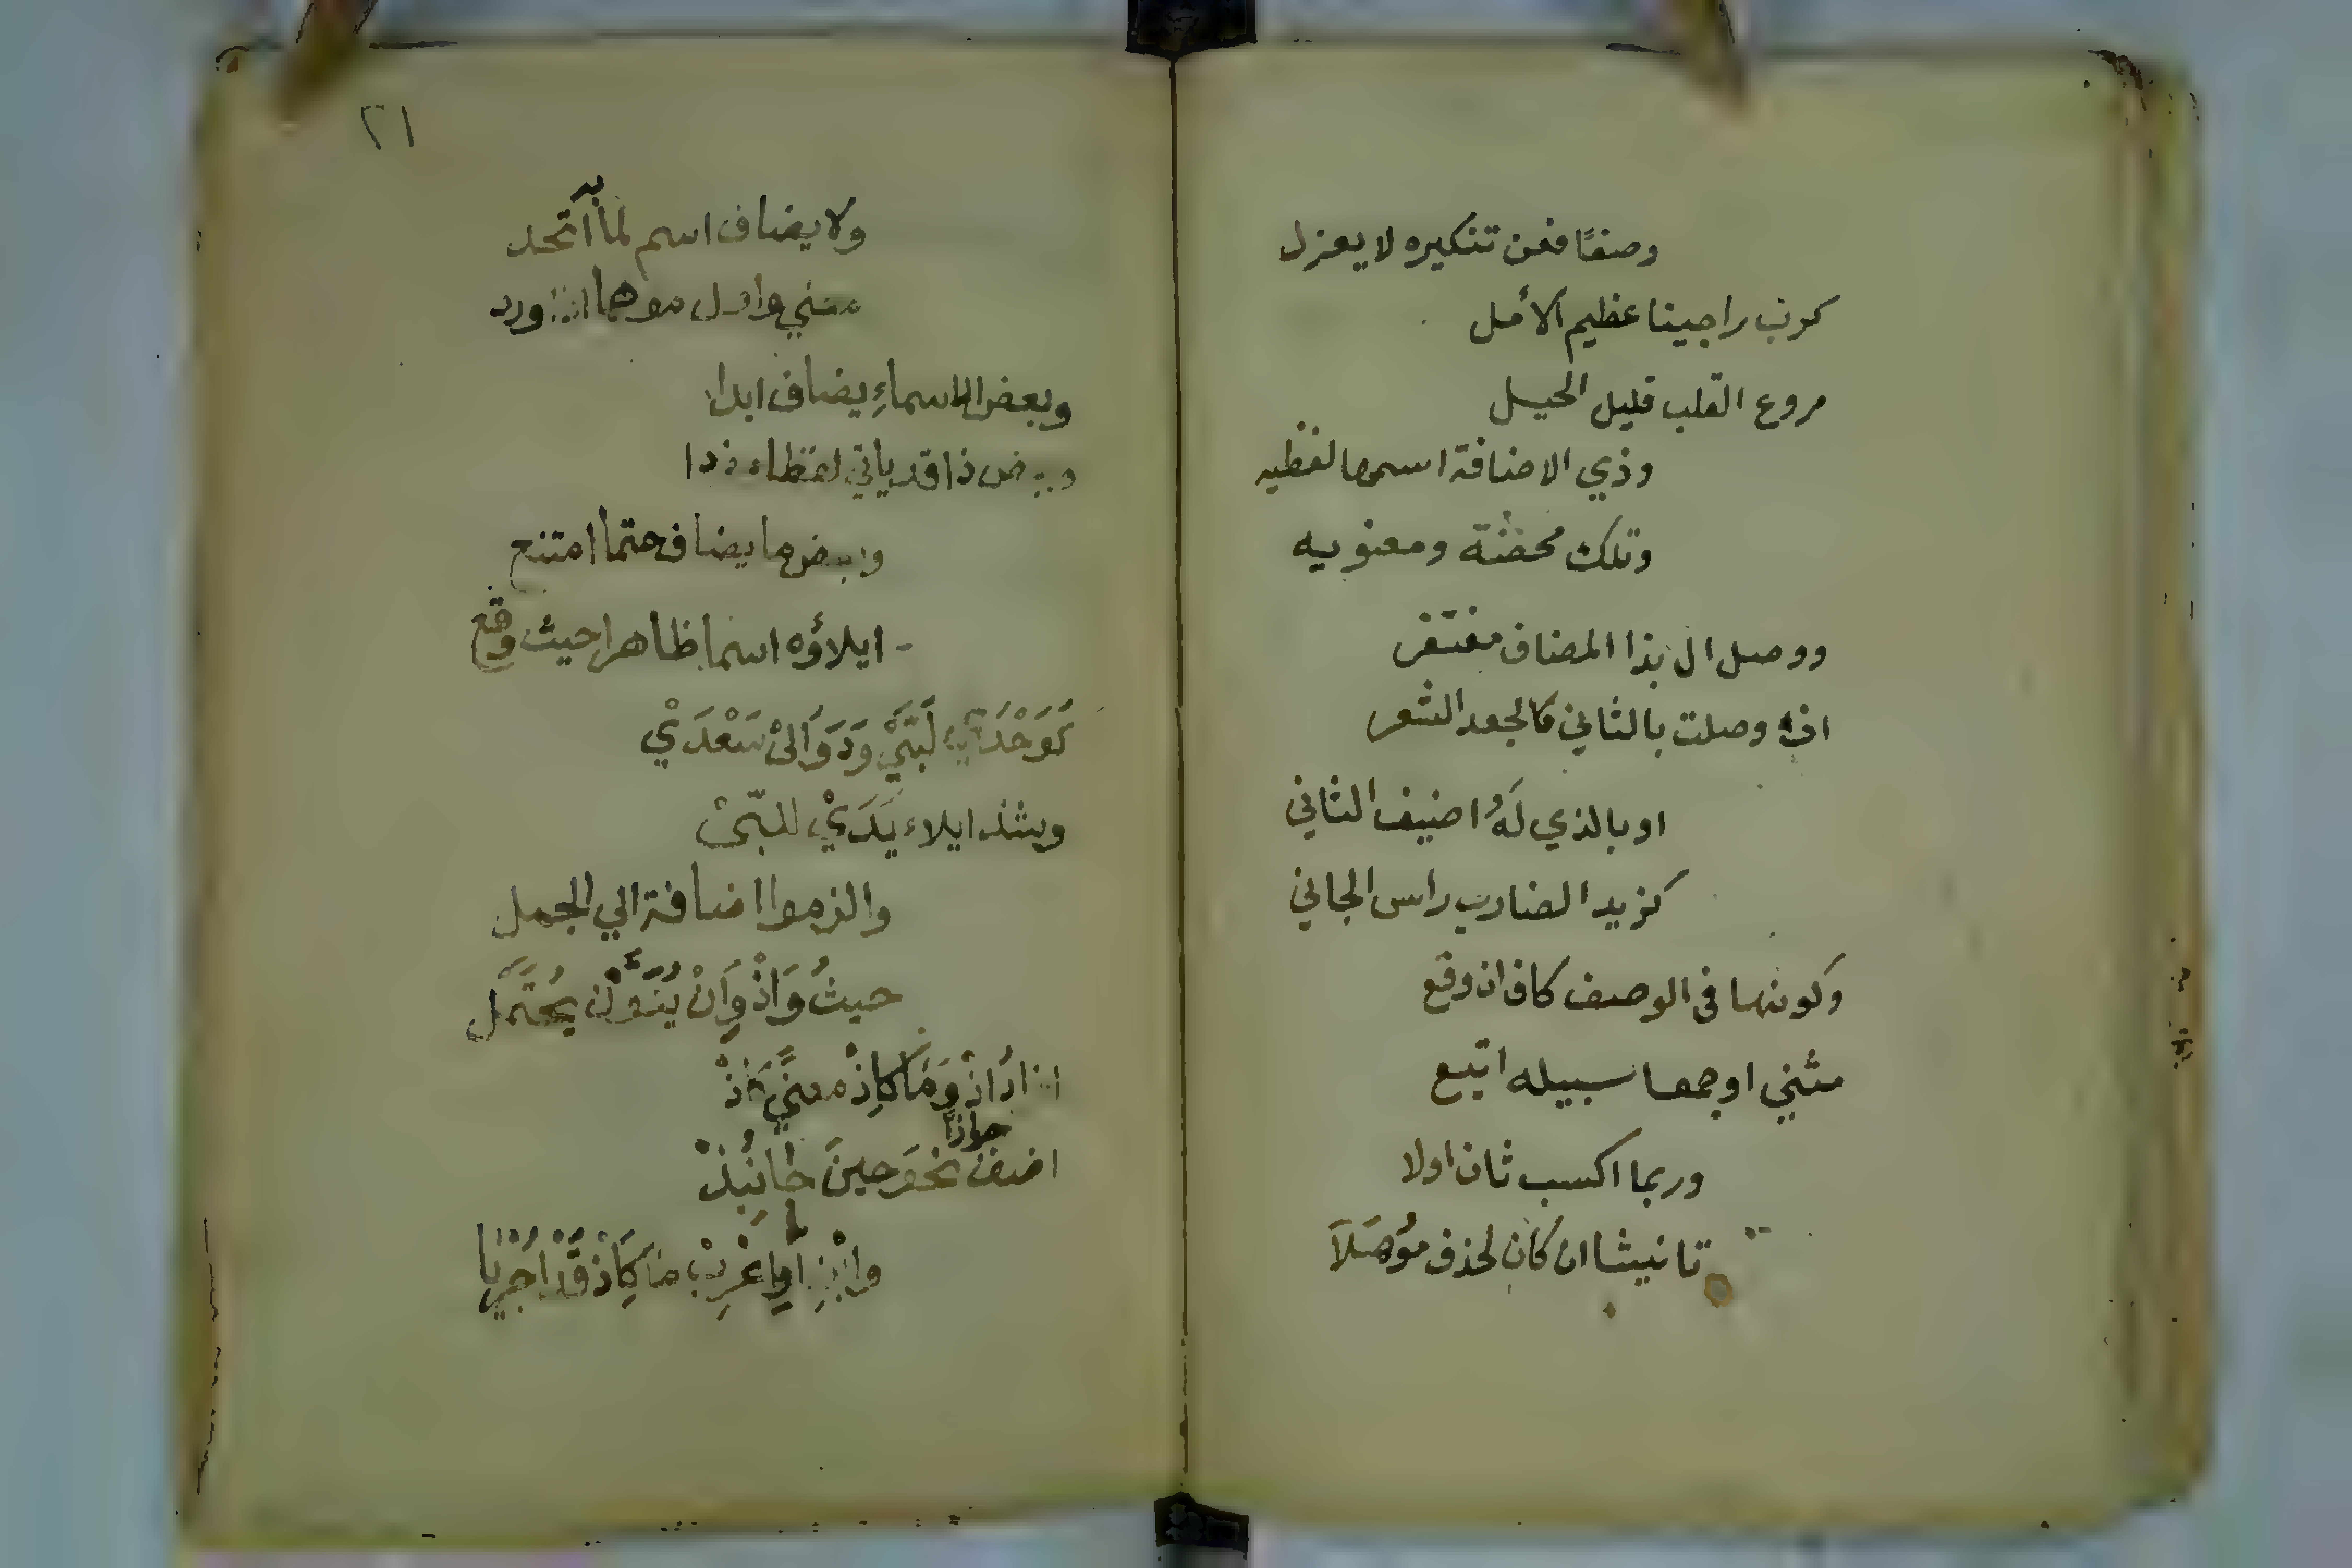 وصفًا فعن تنكيره لا يعزل
كرب راجينا عظيم الأمل
مروع القلب قليل الحيل
وذي الاضافة اسمها لفظيه
وتلك محضة ومعنويه
ووصل ال بذا المضاف مغتفر
ان وصلت بالثاني كالجعد الشعر
او بالذي لَهُ اضيف الثاني
كزيد الضارب راس الجاني
وكونها في الوصف كاف ان وقع
مثني او جمعا سبيله اتبع
وربما اكسب ثان اولا
تانيثا ان كان لحذف مُوهَلَا
٢١
ولا يضاف اسم لما به اتّحد
معني واول موهما اذا ورد
وبعض الاسماءِ يضاف ابدا
وبعض ذا قد ياتي لفظا مفردا
وبعض ما يضاف حتما امتنع
ايلاؤه اسما ظاهرا حيث وقع
كَوَحْدَ لَبَّيْ وَدَوَالَيْ سَعْدَيْ
وشذ ايلاء يَدَيْ للبّيْ
والزموا اضافة الي الجمل
حيثُ وَاذْ وَاِنْ يُنَوَّنْ يُحْتَمَل
افرادُ اذْ وَمَا كاِذْ معنًي كَاذْ
اضف جوازًا نحوَ حينَ جا نُبِذْ
وابْنِ اوِ اعْرِبْ مَا كَاِذْ قَدْ اُجْرِيَا